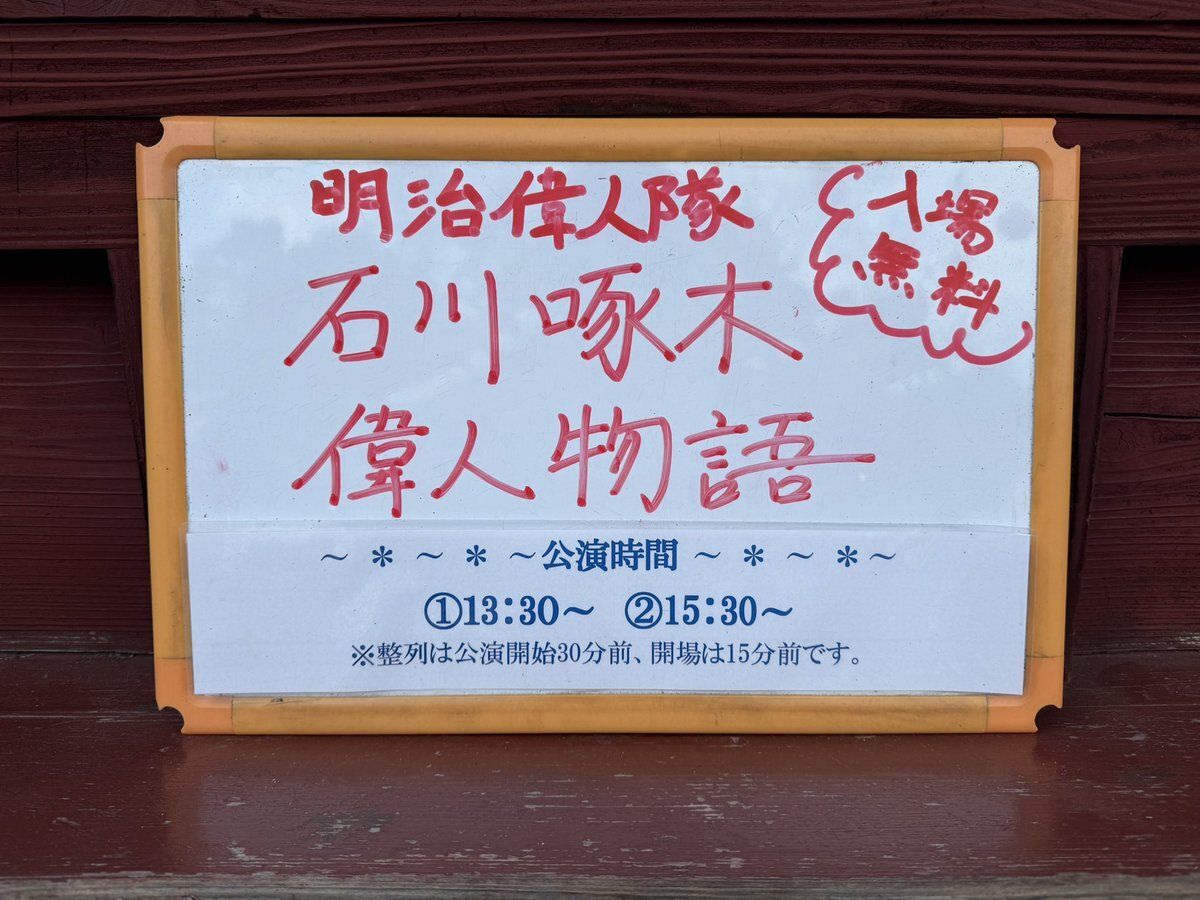 明治偉人隊
入場
無料
石川啄木
偉人物語
～ * ～ * ～公演時間 ～ * ～ *～
①13:30～ ②15:30～
※整列は公演開始30分前、開場は15分前です。